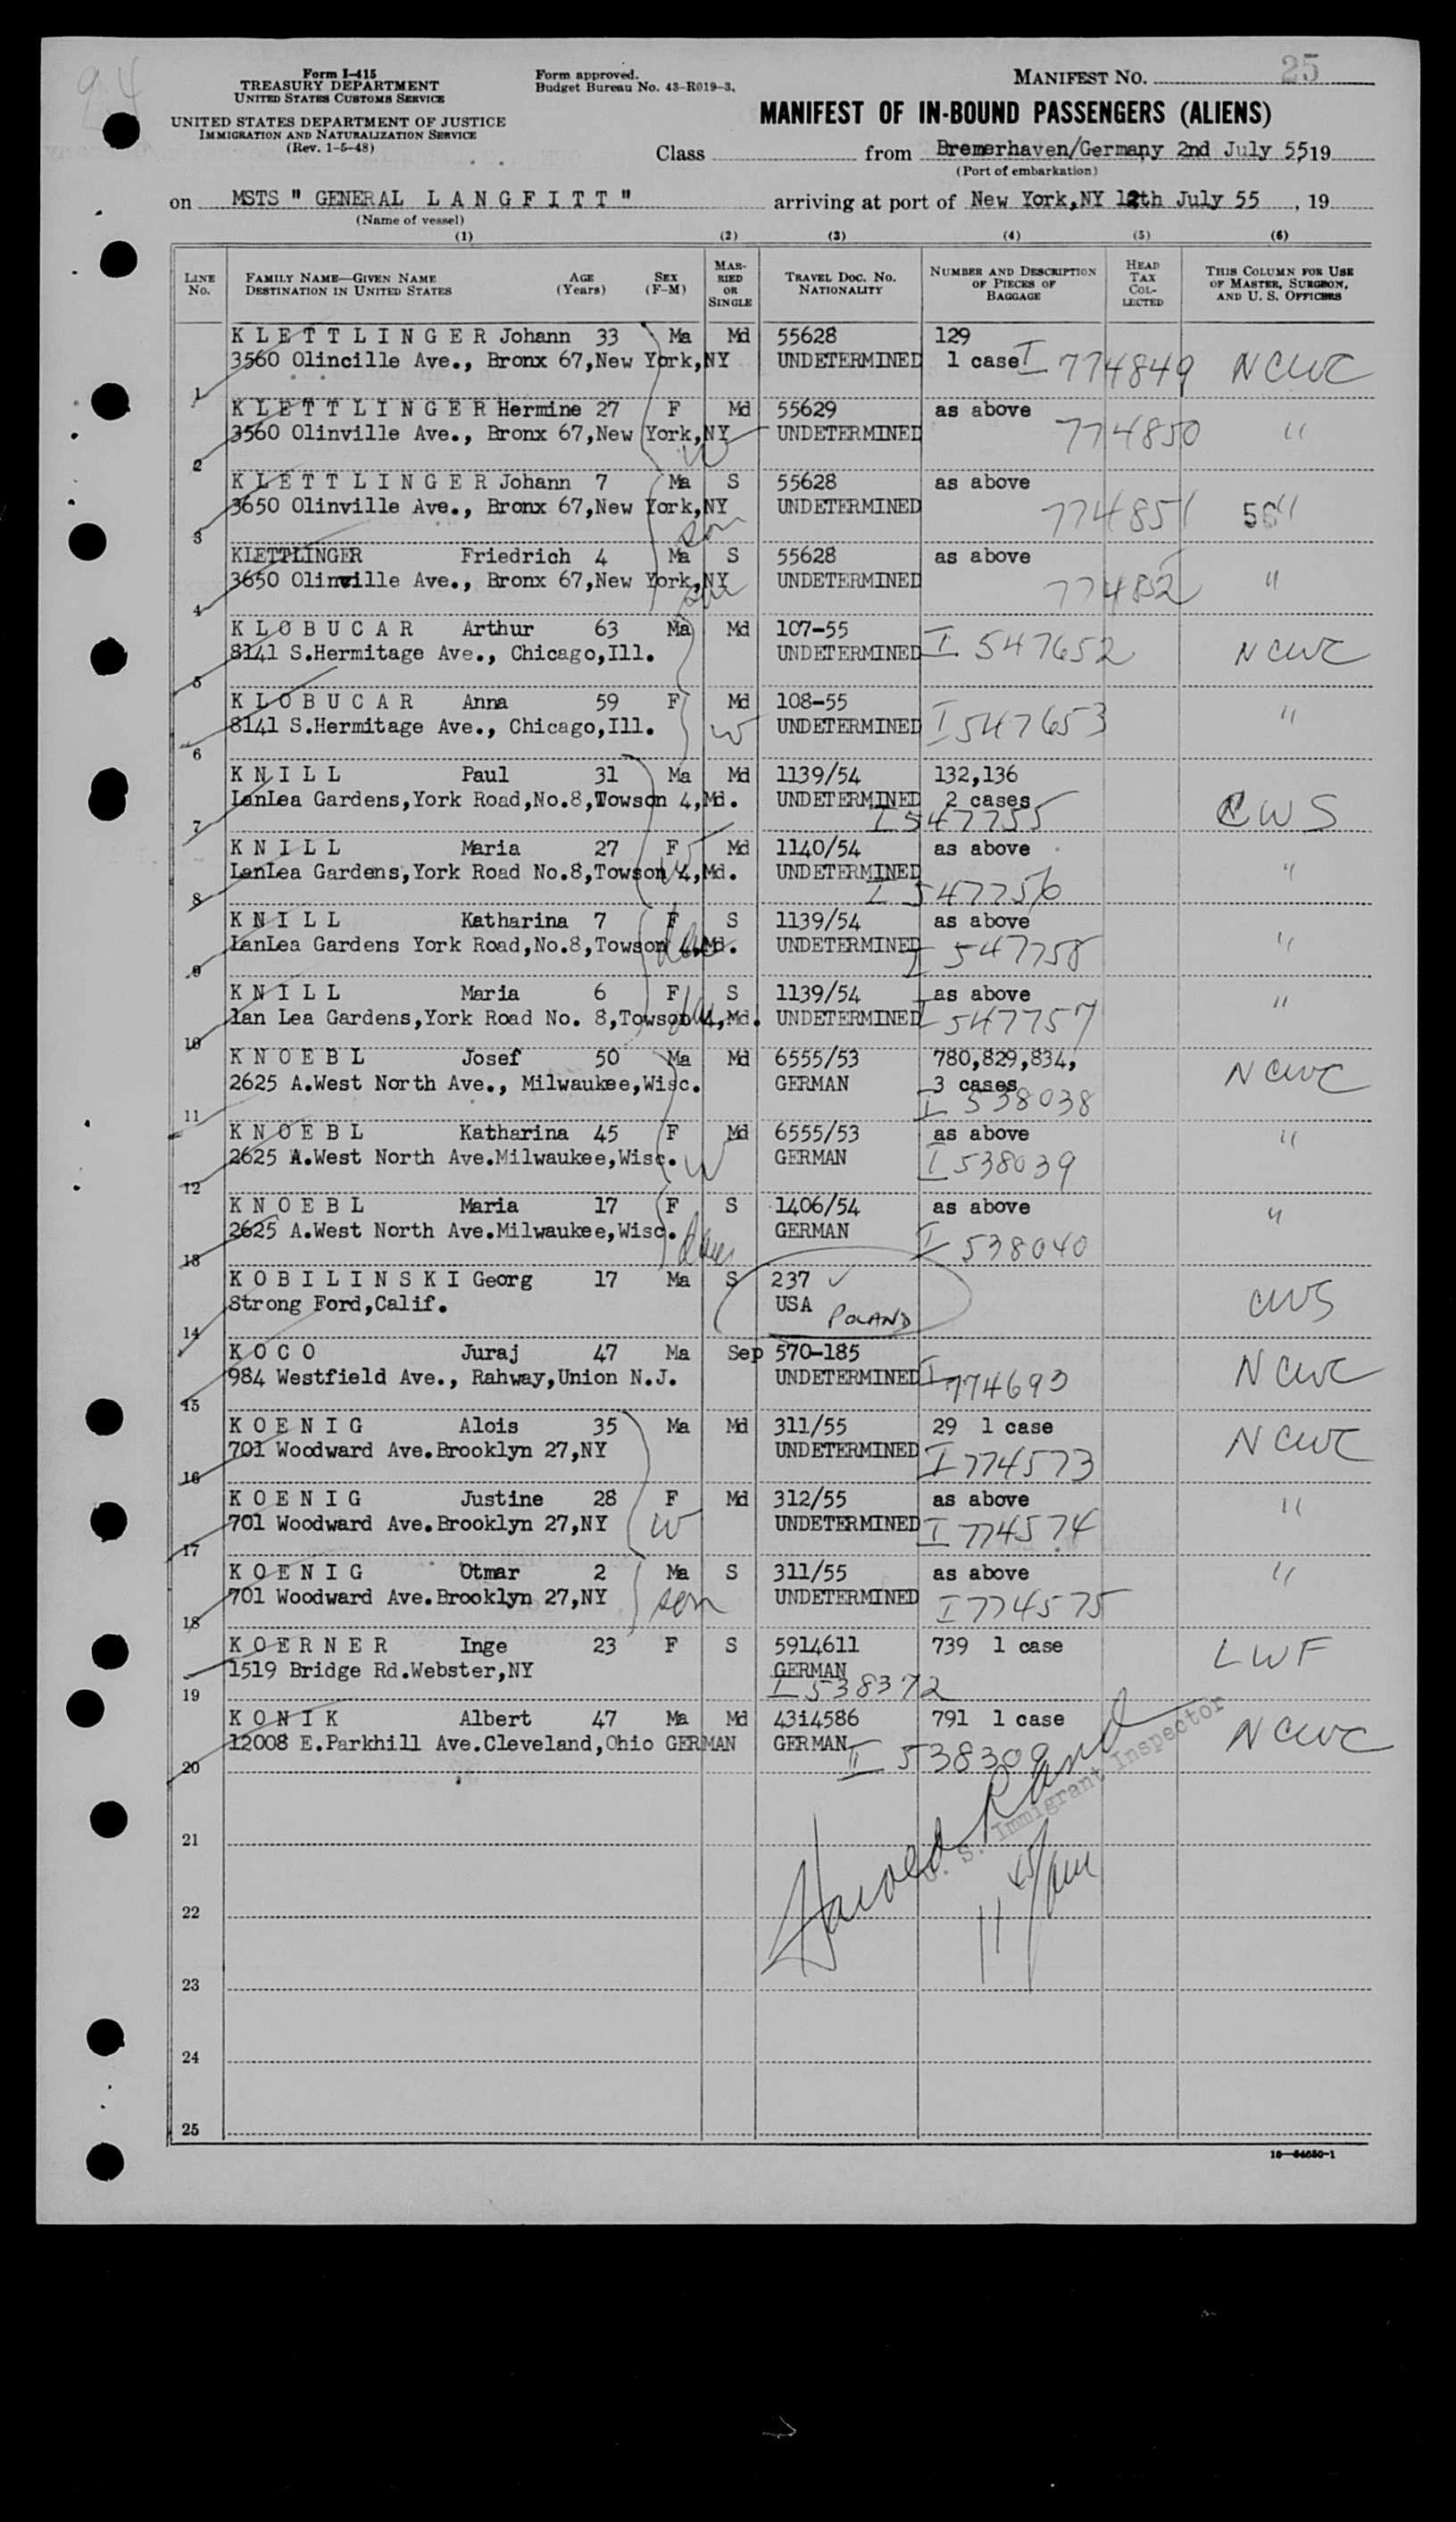 94
Form I-415
TREASURY DEPARTMENT
UNITED STATES CUSTOMS SERVICE
UNITED STATES DEPARTMENT OF JUSTICE
IMMIGRATION AND NATURALIZATION SERVICE
(Rev. 1-5-48)
Form approved.
Budget Bureau No. 43-R019-3.
MANIFEST NO. 25
MANIFEST OF IN-BOUND PASSENGERS (ALIENS)
Class from Bremerhaven/Germany 2nd July 5519
(Port of embarkation)
on MSTS " GENERAL L A N G F I T T " arriving at port of New York,NY 12th July 55, 19
(Name of vessel)
(1) (2) (3) (4) (5) (6)
LINE No. FAMILY NAME—GIVEN NAME DESTINATION IN UNITED STATES AGE (Years) SEX (F-M) MARRIED OR SINGLE TRAVEL DOC. NO. NATIONALITY NUMBER AND DESCRIPTION OF PIECES OF BAGGAGE HEAD TAX COLLECTED THIS COLUMN FOR USE OF MASTER, SURGEON, AND U. S. OFFICERS
K L E T T L I N G E R Johann 33 Ma Md 55628 129
1 3560 Olincille Ave., Bronx 67,New York,NY UNDETERMINED 1 case I 774849 NCWC
K L E T T L I N G E R Hermine 27 F Md 55629 as above
2 3560 Olinville Ave., Bronx 67,New York,NY W UNDETERMINED 774850 "
K L E T T L I N G E R Johann 7 Ma S 55628 as above
3 3650 Olinville Ave., Bronx 67,New York,NY son UNDETERMINED 774851 56 "
KLETTLINGER Friedrich 4 Ma S 55628 as above
4 3650 Olinville Ave., Bronx 67,New York,NY son UNDETERMINED 774852 "
K L O B U C A R Arthur 63 Ma Md 107-55
5 8141 S.Hermitage Ave., Chicago,Ill. UNDETERMINED I 547652 NCWC
K L O B U C A R Anna 59 F Md 108-55
6 8141 S.Hermitage Ave., Chicago,Ill. W UNDETERMINED I 547653 "
K N I L L Paul 31 Ma Md 1139/54 132,136
7 LanLea Gardens,York Road,No.8,Towson 4,Md. UNDETERMINED 2 cases I 547755 CWS
K N I L L Maria 27 F Md 1140/54 as above
8 LanLea Gardens,York Road No.8,Towson 4,Md. W UNDETERMINED I 547756 "
K N I L L Katharina 7 F S 1139/54 as above
9 LanLea Gardens York Road,No.8,Towson 4,Md. dau UNDETERMINED I 547758 "
K N I L L Maria 6 F S 1139/54 as above
10 lan Lea Gardens,York Road No. 8,Towson 4,Md. dau UNDETERMINED I 547757 "
K N O E B L Josef 50 Ma Md 6555/53 780,829,834,
11 2625 A.West North Ave., Milwaukee,Wisc. GERMAN 3 cases I 538038 NCWC
K N O E B L Katharina 45 F Md 6555/53 as above
12 2625 A.West North Ave.Milwaukee,Wisc. W GERMAN I 538039 "
K N O E B L Maria 17 F S 1406/54 as above
13 2625 A.West North Ave.Milwaukee,Wisc. dau GERMAN I 538040 "
K O B I L I N S K I Georg 17 Ma S 237 ✓
14 Strong Ford,Calif. USA POLAND CWS
K O C O Juraj 47 Ma Sep 570-185
15 984 Westfield Ave., Rahway,Union N.J. UNDETERMINED I 774693 NCWC
K O E N I G Alois 35 Ma Md 311/55 29 1 case
16 701 Woodward Ave.Brooklyn 27,NY UNDETERMINED I 774573 NCWC
K O E N I G Justine 28 F Md 312/55 as above
17 701 Woodward Ave.Brooklyn 27,NY W UNDETERMINED I 774574 "
K O E N I G Otmar 2 Ma S 311/55 as above
18 701 Woodward Ave.Brooklyn 27,NY son UNDETERMINED I 774575 "
K O E R N E R Inge 23 F S 5914611 739 1 case
19 1519 Bridge Rd.Webster,NY GERMAN I 538372 LWF
K O N I K Albert 47 Ma Md 43i4586 791 1 case
20 12008 E.Parkhill Ave.Cleveland,Ohio GERMAN GERMAN I 538309 NCWC
Harold Rand
U. S. Immigrant Inspector
21
11 45/am
22
23
24
25
16—54650-1